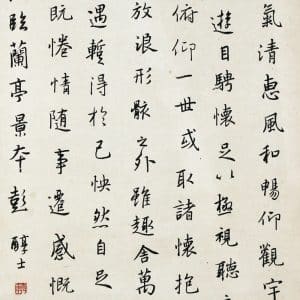 氣清惠風和暢仰觀宇
遊目騁懷足以極視聽
俯仰一世或取諸懷抱
放浪形骸之外雖趣舍萬
遇暫得於己怏然自足
既惓情随事遷感慨
臨蘭亭景本 彭醇士